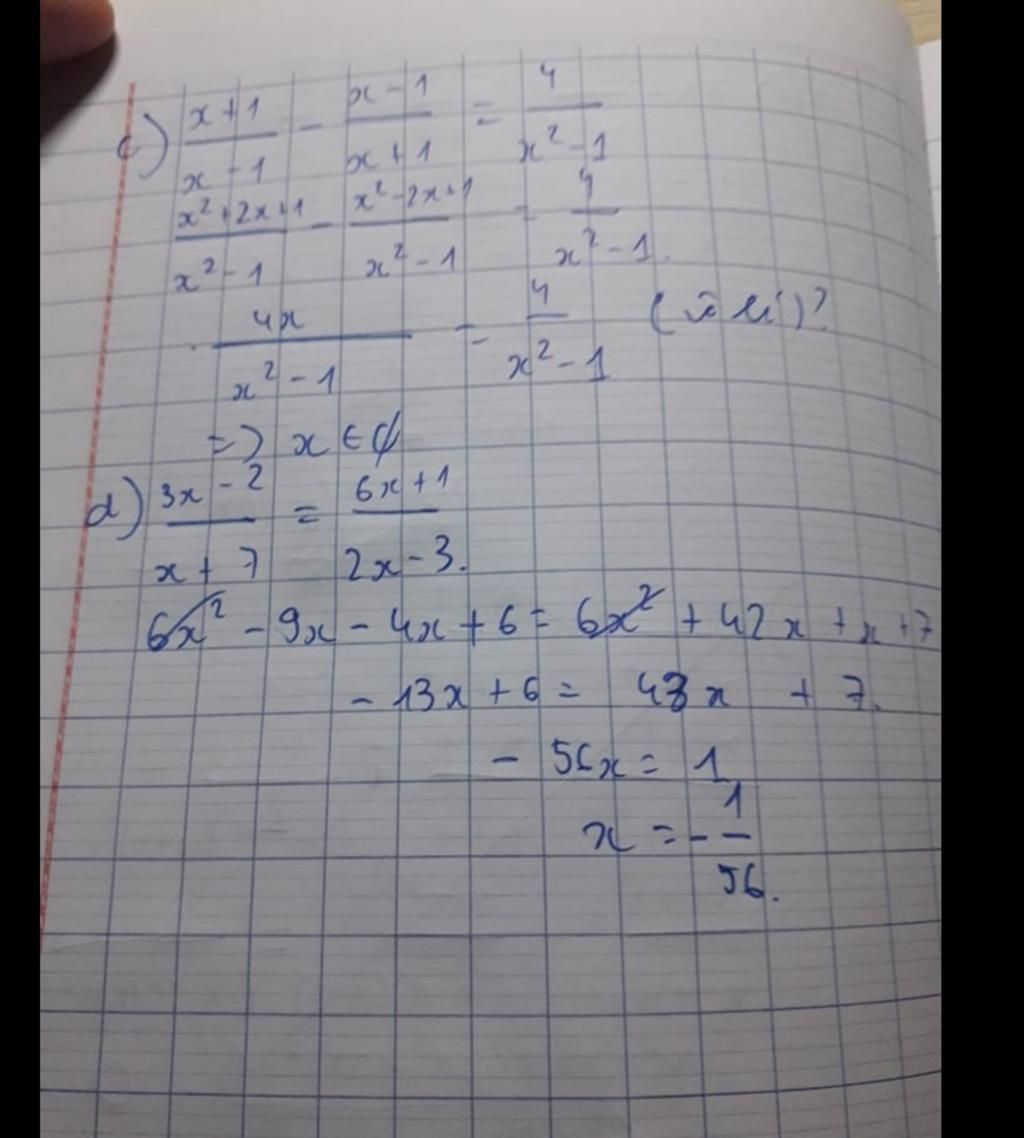 c) \frac{x+1}{x-1} - \frac{x-1}{x+1} = \frac{4}{x^2-1}
\frac{x^2+2x+1}{x^2-1} - \frac{x^2-2x+1}{x^2-1} = \frac{4}{x^2-1}
\frac{4x}{x^2-1} = \frac{4}{x^2-1} (vô lí)?
=> x ∈ ∅
d) \frac{3x-2}{x+7} = \frac{6x+1}{2x-3}.
6x^2 - 9x - 4x + 6 = 6x^2 + 42x + x + 7
- 13x + 6 = 43x + 7.
- 56x = 1
x = - \frac{1}{56}.